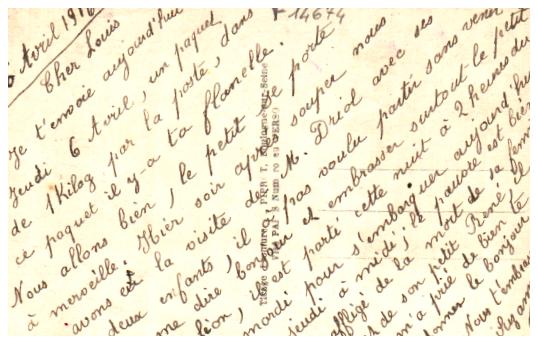 6 Avril 1916
Cher Louis
Je t'envoie aujourd'hui
Jeudi 6 Avril, un paquet
de 1 Kilog par la poste, dans
ce paquet il y-a ta flanelle.
Nous allons bien, le petit se porte
à merveille. Hier soir après souper nous
avons eu la visite de M. Driol avec ses
deux enfants, il n'a pas voulu partir sans venir
me dire bonjour et embrasser surtout le petit
léon, il est parti cette nuit à 2 heures du
mardi pour s'embarquer aujourd'hui
jeudi à midi; le pauvre est bien
affligé de la mort de sa femme
et de son petit René il
m'a prié de bien te
donner le bonjour
Nous t'embras
14674